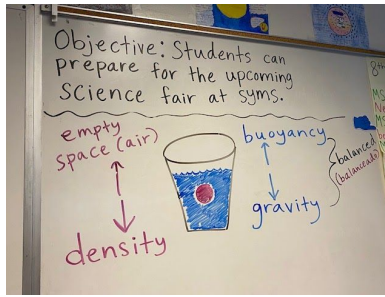 Objective: Students can
prepare for the upcoming
science fair at syms.
empty
space (air)
density
buoyancy
gravity
balanced
(balanceado)
8th
MS